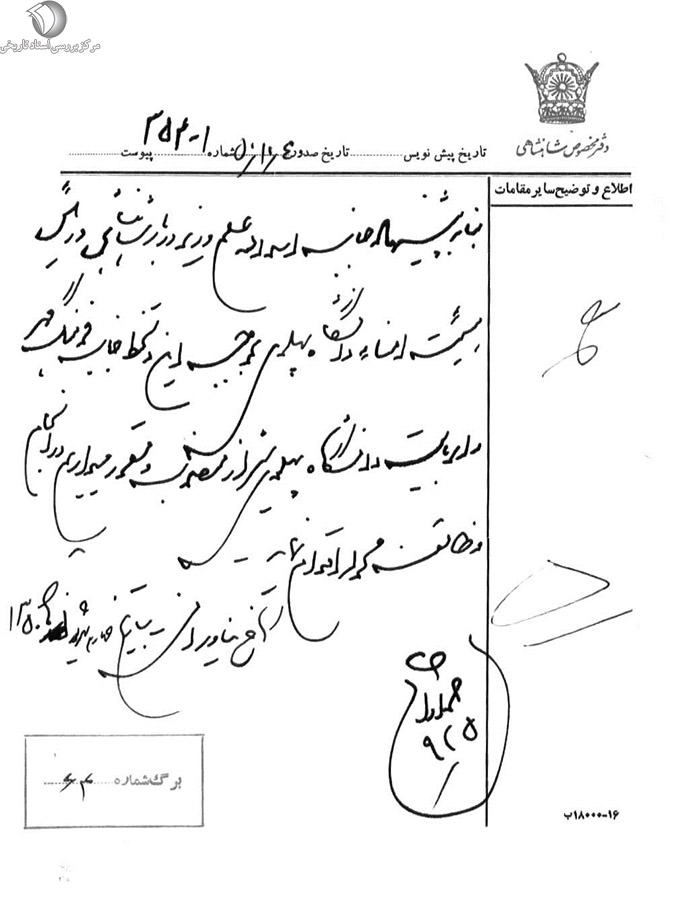 مرکز بررسی اسناد تاریخی
دفتر مخصوص شاهنشاهی
تاریخ پیش نویس ........ تاریخ صدور ........ شماره ۱-۳۵۴ پیوست ........
اطلاع و توضیح سایر مقامات
بنا به پیشنهاد جناب اسداله علم وزیر دربار شاهنشاهی و رئیس
هیئت امناء دانشگاه پهلوی بموجب این دستخط جناب فرهنگ مهر
را بریاست دانشگاه پهلوی شیراز منصوب و مقرر میداریم در انجام
وظائف محوله اقدام نماید
کاخ نیاوران بتاریخ تیر ماه ۱۳۵۰
۹/۲۵
برگ شماره ........
۱۶-۱۸۰۰۰ب